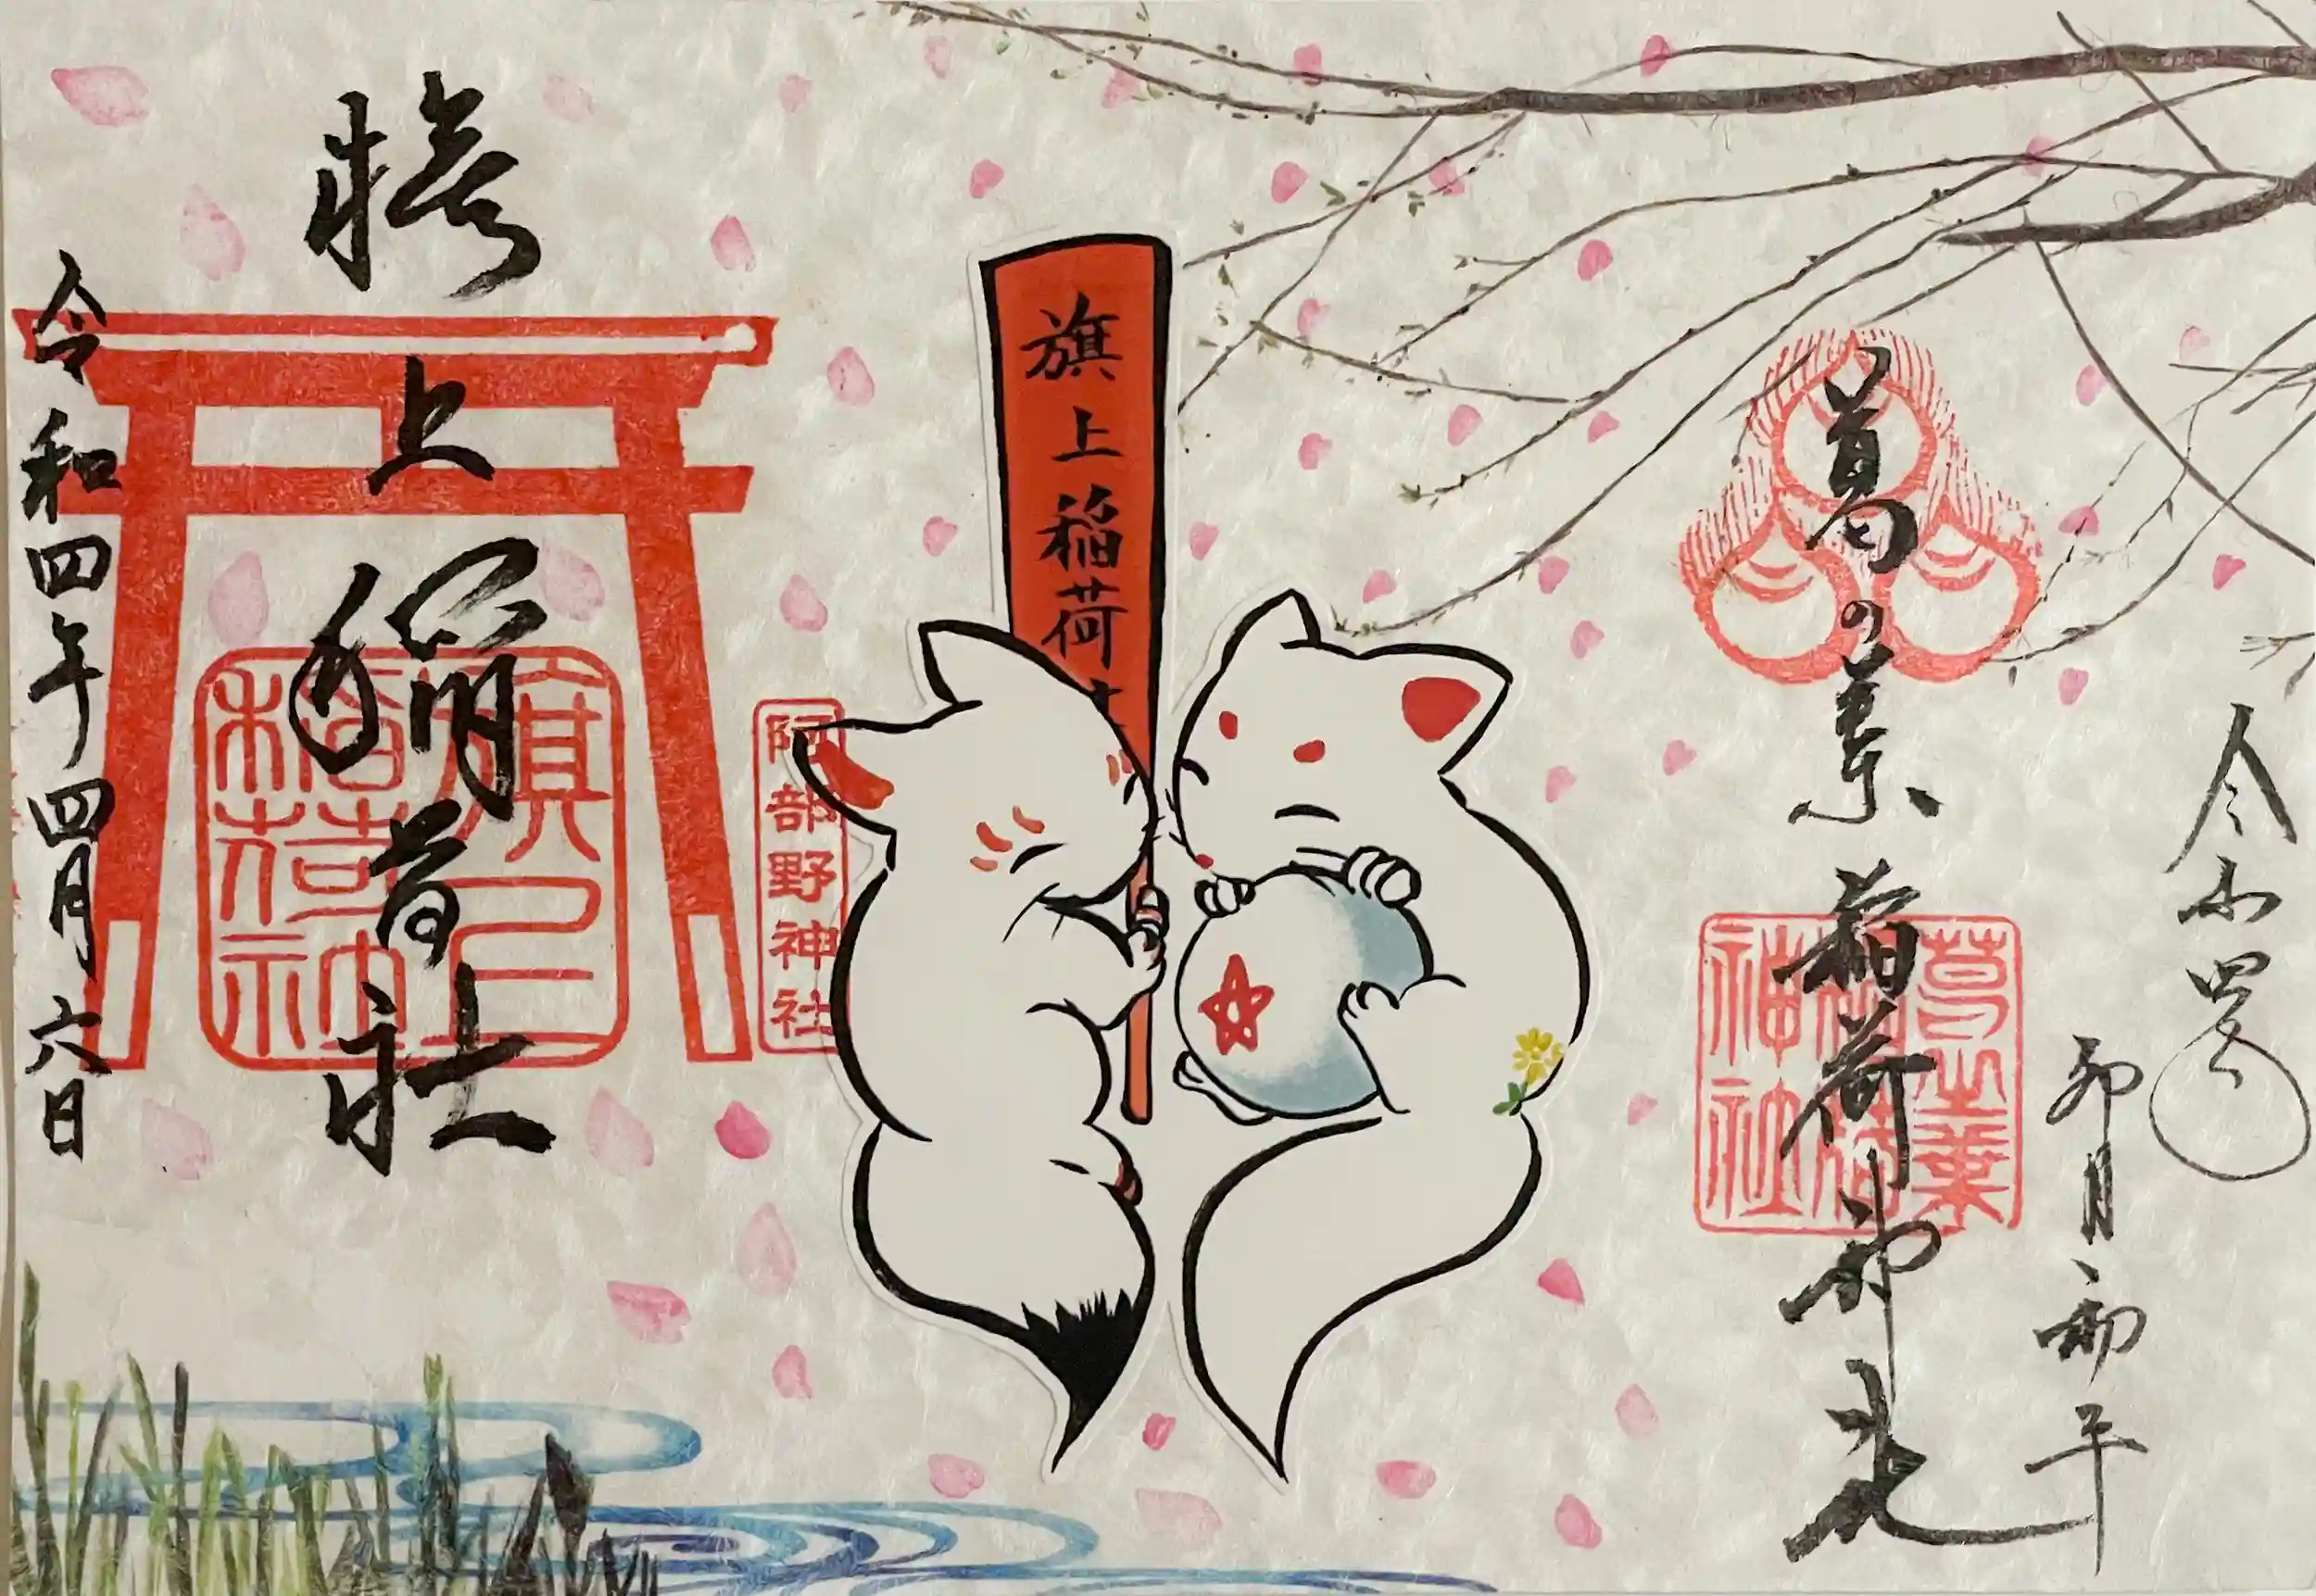 令和四年
卯月、初午
葛の葉稲荷神社
葛之葉稲荷神社
旗上稲荷社
阿部野神社
旗上稲荷社
旗上稲荷神社
令和四年四月六日